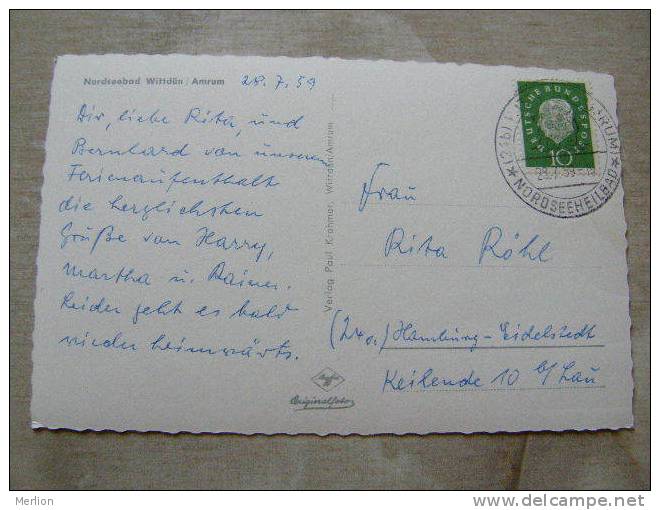 Nordseebad Wittdün / Amrum
28.7.59
Dir, liebe Rita, und
Bernhard von unserem
Ferienaufenthalt
die herzlichsten
Grüße von Harry,
Martha u. Rainer.
Leider geht es bald
wieder heimwärts.
Verlag Paul Krahmer, Wittdün/Amrum
Agfa
Originalfoto
DEUTSCHE BUNDESPOST
10
(24b)
AMRUM
NORDSEEHEILBAD
Frau
Rita Röhl
(24a.) Hamburg-Eidelstedt
10 b/Lau
Merlion
http://www.delcampe.net